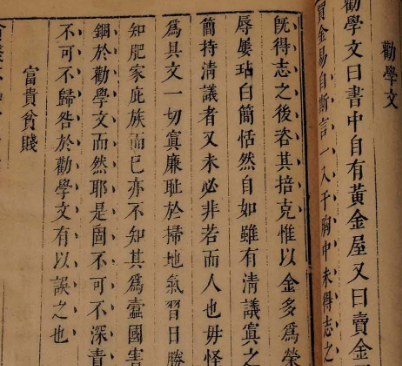 勸學文
勸學文曰書中自有黃金屋又曰賣金
買金易自斯言一入于胸中未得志之
旣得志之後恣其掊克惟以金多爲榮
辱屢玷白簡恬然自如雖有清議寘之
簡持清議者又未必非若而人也毋怪
爲具文一切寘廉恥於掃地氣習日勝
知肥家庇族而已亦不知其爲蠹國害
錮於勸學文而然耶是固不可不深責
不可不歸咎於勸學文有以誤之也
富貴貧賤